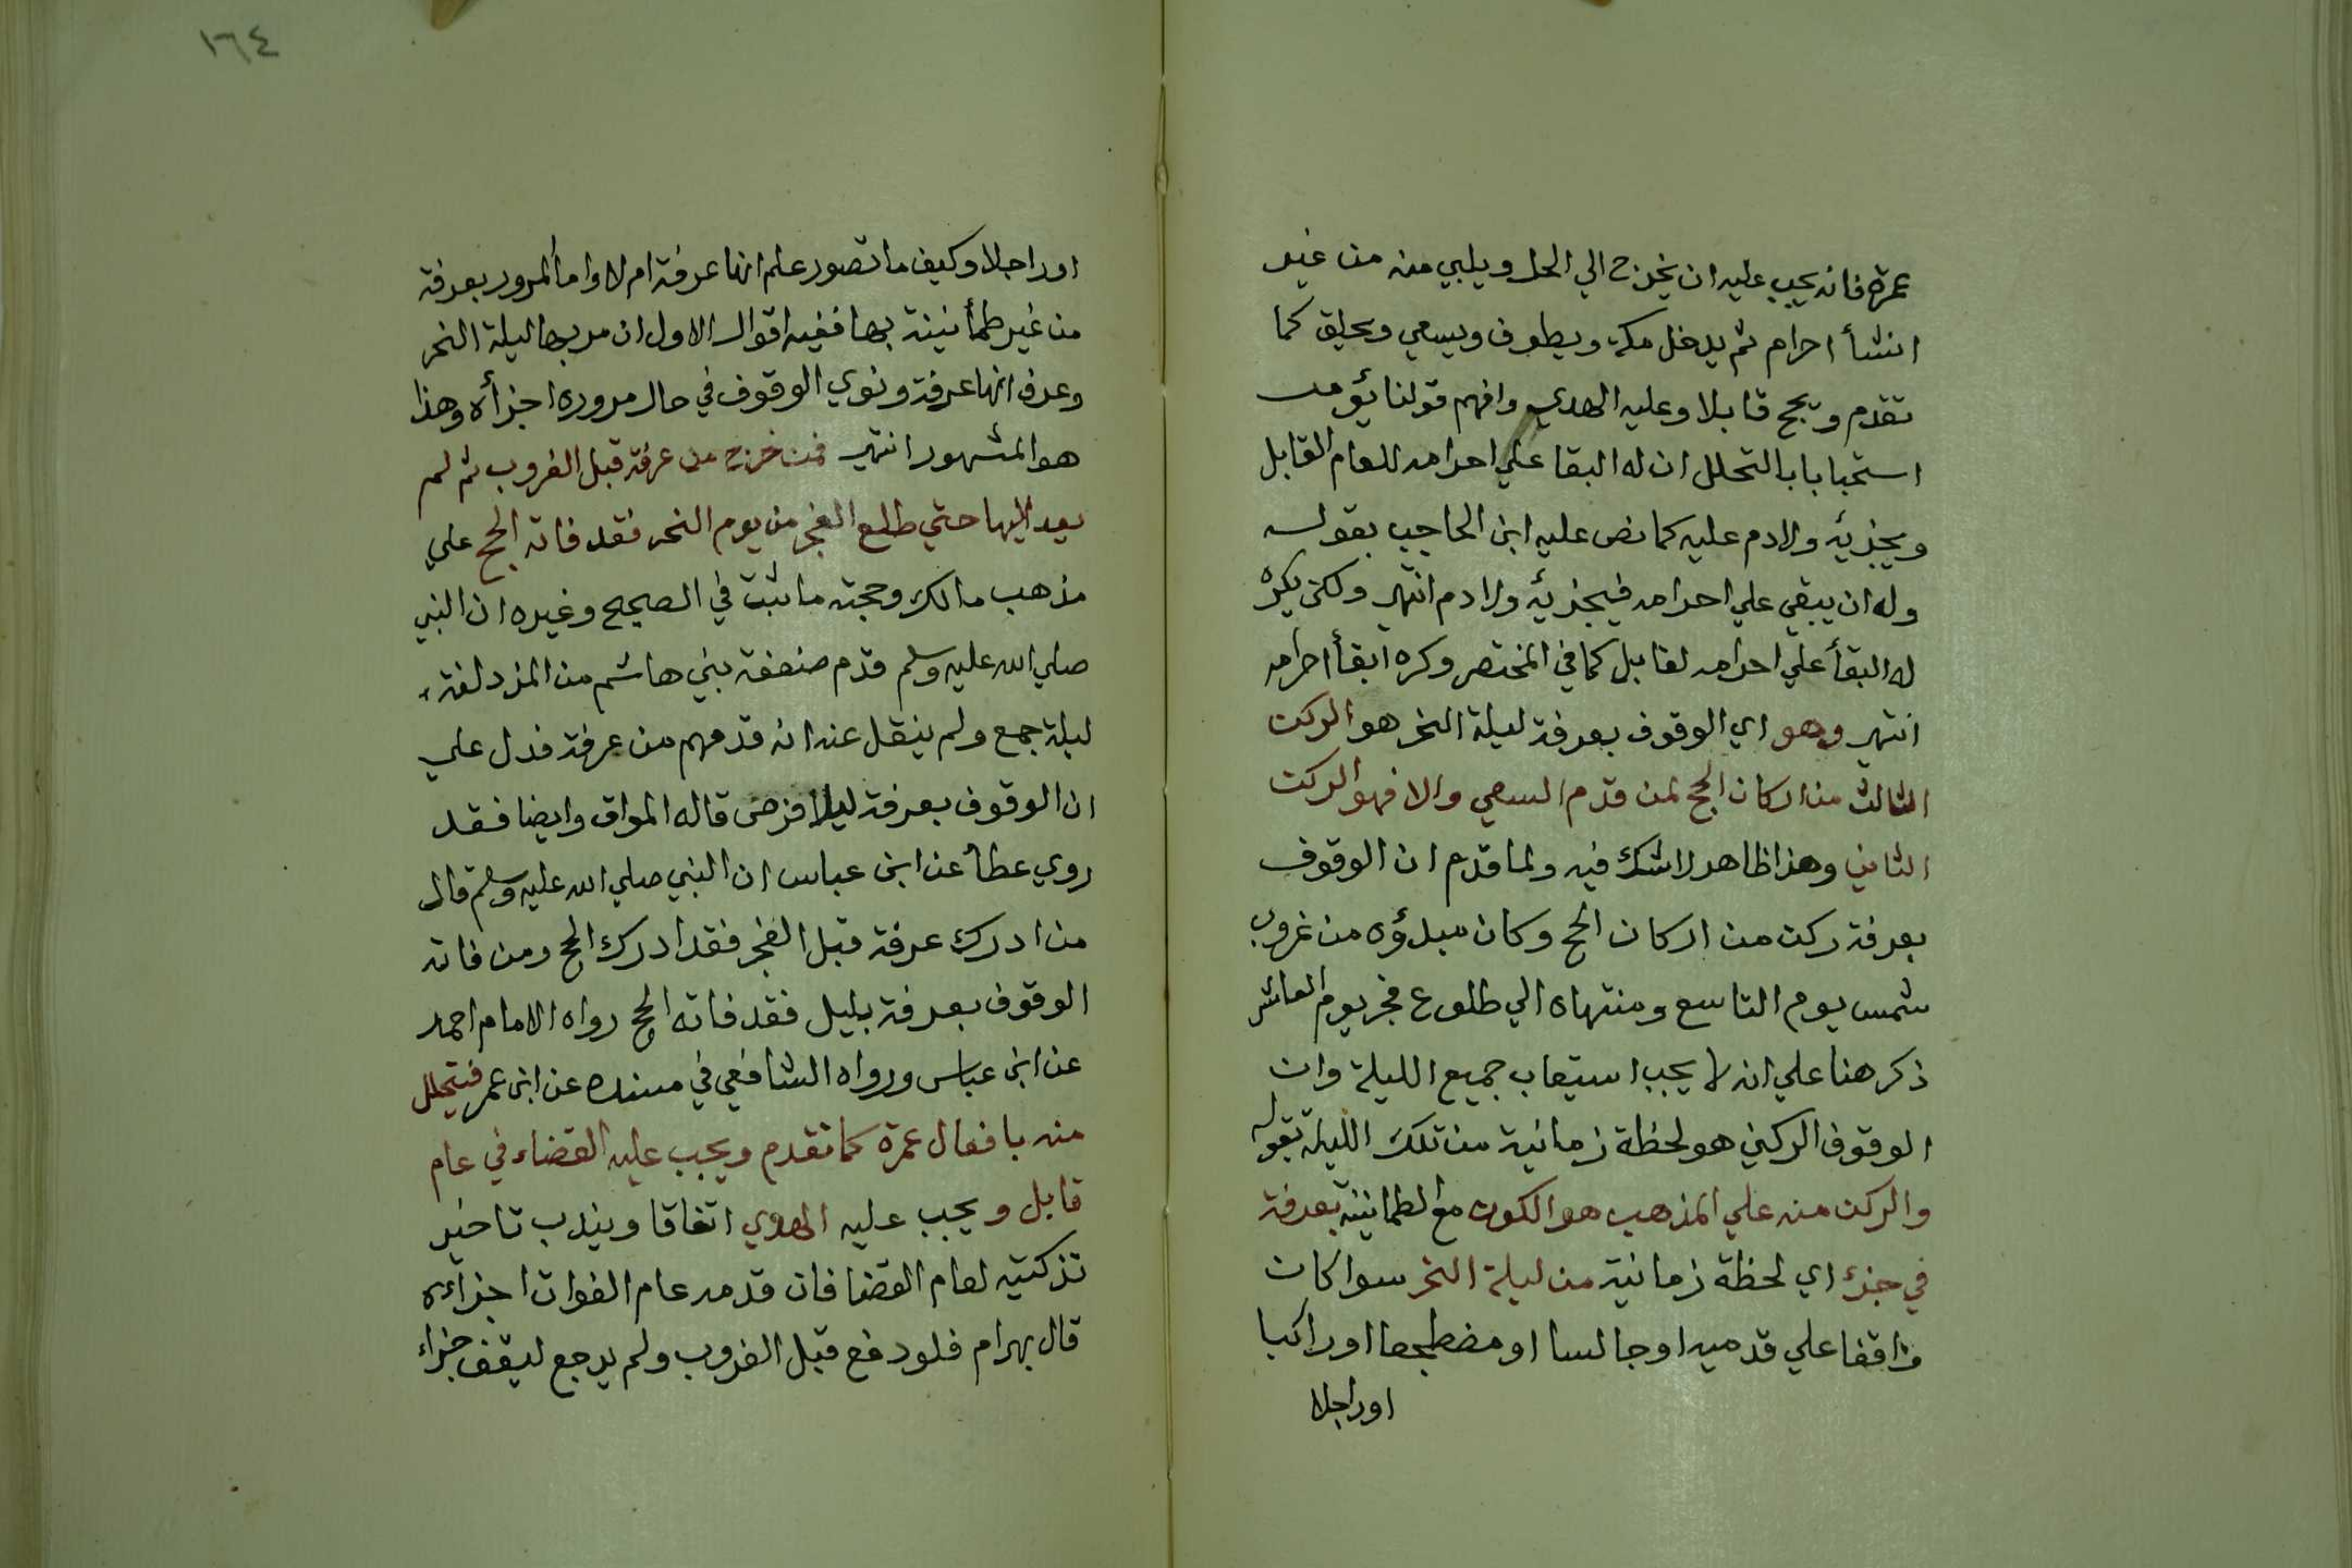 عمرة فانه يجب عليه ان يخرج الي الحل ويلبي منه من غير
انشأ احرام ثم يدخل مكة ويطوف ويسعي ويحلق كما
تقدم ويحج قابلا وعليه الهدي وافهم قولنا يؤمر
استحبابا بالتحلل ان له البقا علي احرامه للعام القابل
ويجزئه ولا دم عليه كما نص عليه ابن الحاجب بقوله
وله ان يبقي علي احرامه فيجزئه ولا دم انتهي ولكن يكره
له البقأ علي احرامه لقابل كما في المختصر وكره ابقأ احرامه
انتهي وهو اي الوقوف بعرفة ليلة النحر هو الركن
الثالث من اركان الحج لمن قدم السعي والا فهو الركن
الثاني وهذا ظاهر لا شك فيه ولما قدم ان الوقوف
بعرفة ركن من اركان الحج وكان مبدؤه من غروب
شمس يوم التاسع ومنتهاه الي طلوع فجر يوم العاشر
ذكر هنا علي انه لا يجب استيعاب جميع الليلة وان
الوقوف الركني هو لحظة زمانية من تلك الليلة بقوله
والركن منه علي المذهب هو الكون مع الطمانينة بعرفة
في جزء اي لحظة زمانية من ليلة النحر سوا كان
واقفا علي قدميه او جالسا او مضطجعا او راكبا
او راجلا
١٦٤
او راجلا وكيف ما تصور علم انها عرفة ام لا واما المرور بعرفة
من غير طمأنينة بها ففيه اقوال الاول ان مر بها ليلة النحر
وعرف انها عرفة ونوي الوقوف في حال مروره اجزأه وهذا
هو المشهور انتهي فمن خرج من عرفة قبل الغروب ثم لم
يعد اليها حتي طلع الفجر من يوم النحر فقد فاته الحج علي
مذهب مالك وحجته ما ثبت في الصحيح وغيره ان النبي
صلي الله عليه وسلم قدم ضعفة بني هاشم من المزدلفة
ليلة جمع ولم ينقل عنه انه قدمهم من عرفة فدل علي
ان الوقوف بعرفة ليلا فرض قاله المواق وايضا فقد
روي عطأ عن ابن عباس ان النبي صلي الله عليه وسلم قال
من ادرك عرفة قبل الفجر فقد ادرك الحج ومن فاته
الوقوف بعرفة بليل فقد فاته الحج رواه الامام احمد
عن ابن عباس ورواه الشافعي في مسنده عن ابن عمر فيتحلل
منه بافعال عمرة كما تقدم ويجب عليه القضاء في عام
قابل ويجب عليه الهدي اتفاقا ويندب تاخير
تذكيته لعام القضا فان قدمه عام الفوات اجزاءه
قال بهرام فلو دفع قبل الغروب ولم يرجع ليقف جزاء